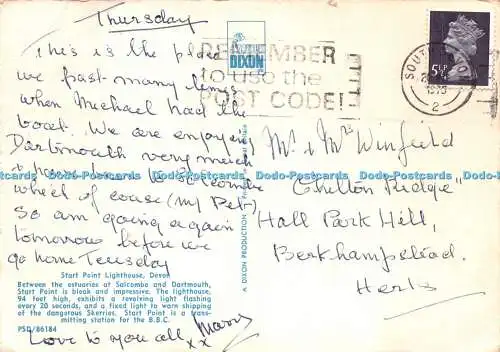 Thursday
This is the place
we past many times
when Michael had the
boat. We are enjoying
Dartmouth very much
wheel of course (my Bet-)
so am going again
tomorrow before we
go home Tuesday
Start Point Lighthouse, Devon
Between the estuaries of Salcombe and Dartmouth,
Start Point is bleak and impressive. The lighthouse,
94 feet high, exhibits a revolving light flashing
every 20 seconds, and a fixed light to warn shipping
of the dangerous Skerries. Start Point is a trans-
mitting station for the B.B.C.
PSD/86184
Love to you all Mary
xx
DIXON
A DIXON PRODUCTION
REMEMBER
to use the
POST CODE!
5½P
2
Mr & Mrs Winfield
"Chilton Ridge"
Hall Park Hill,
Berkhampstead.
Herts
Dodo-Postcards Dodo-Postcards Dodo-Postcards Dodo-Postcards Dodo-Postcards